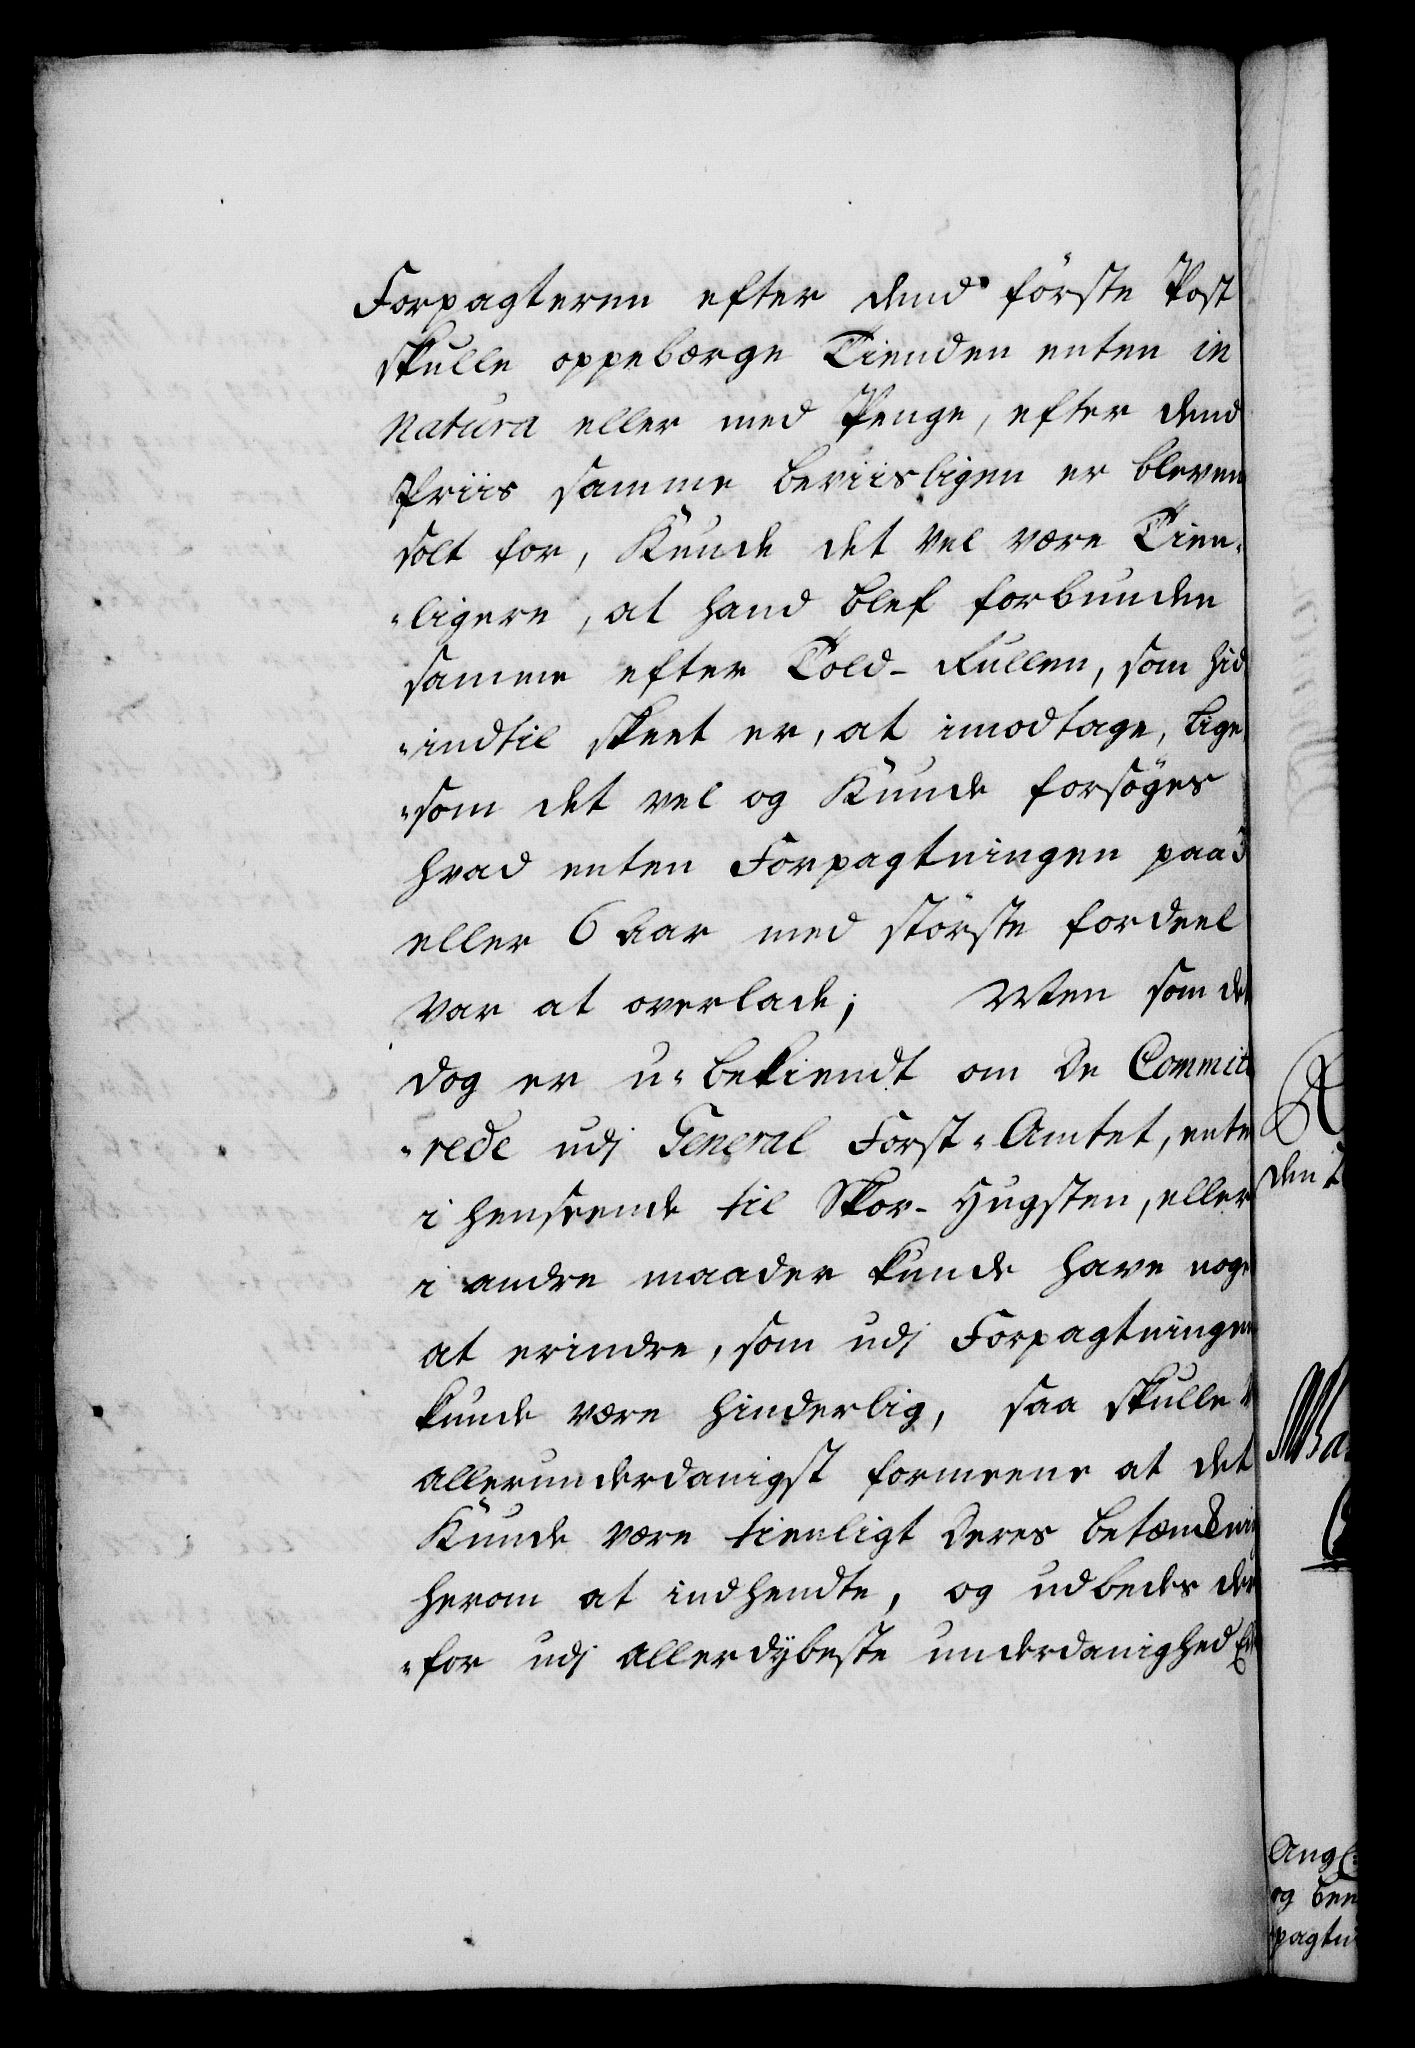 Forpagteren efter dend förste Post
skulle oppebærge Tienden enten in
Natura eller med Penge, efter dend
Priis samme beviisligen er bleven
solt for, Kunde det vel være Tien-
-ligere, at hand blef forbunden
samme efter Told-Rullen, som hid
-indtil skeet er, at imodtage, lige
-som det vel og Kunde forsöges
hvad enten Forpagtningen paa 3
eller 6 Aar med störste fordeel
var at overlade; Men som det
dog er u-bekiendt om De Commit
-rede udj General Forst-Amtet, ente
i henseende til Skov-Hugsten, eller
i andre maader kunde have noge
at erindre, som udj Forpagtningen
kunde være hinderlig, saa skulle
allerunderdanigst formeene at det
Kunde være tienligt Deres betænkni
herom at indhendte, og udbedes der
-for udj allerdybeste underdanighed
den
Ma
og
pagtn